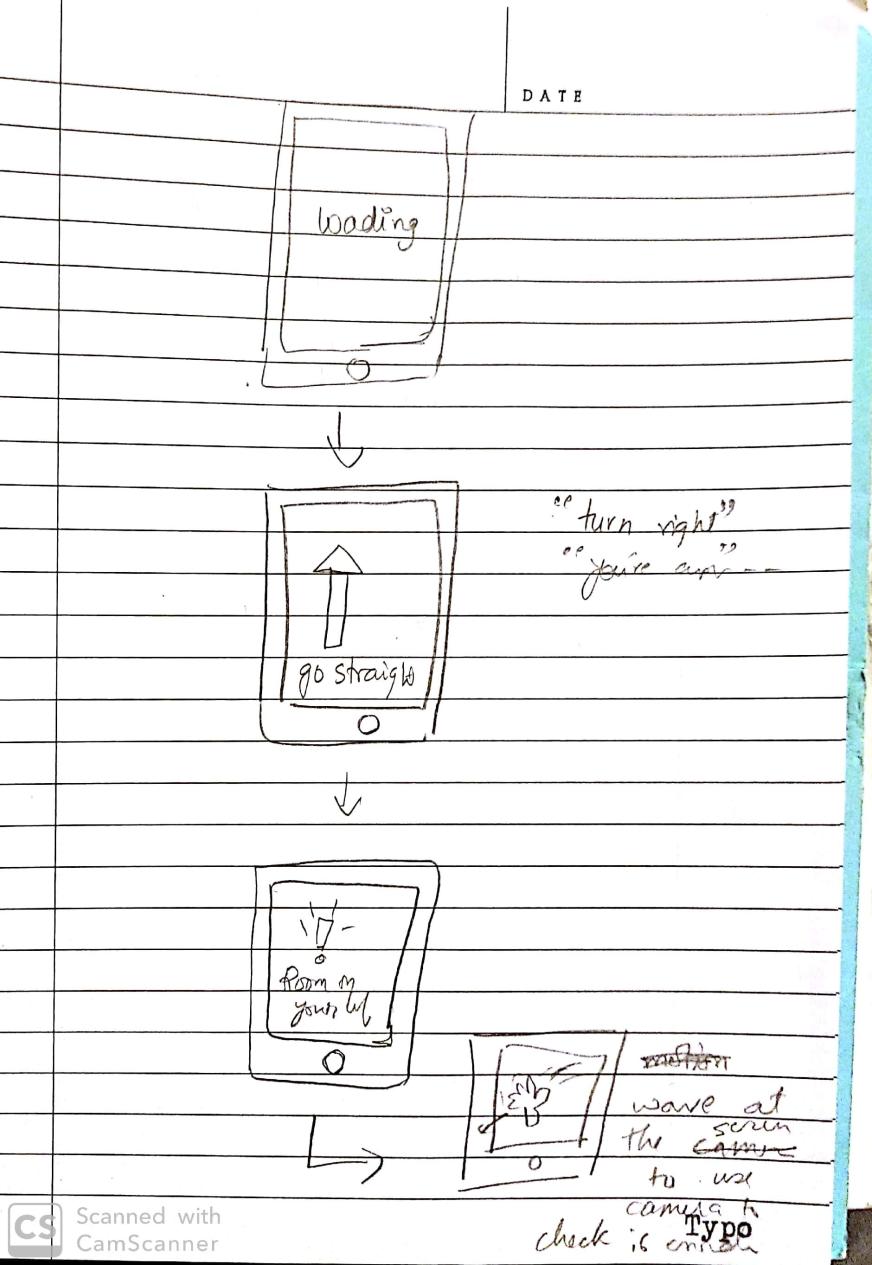 DATE
loading
"turn right"
"you're
go straight
Room on
your left
wave at
screen
the
to use
camera to
Typo
check is
CS Scanned with
CamScanner